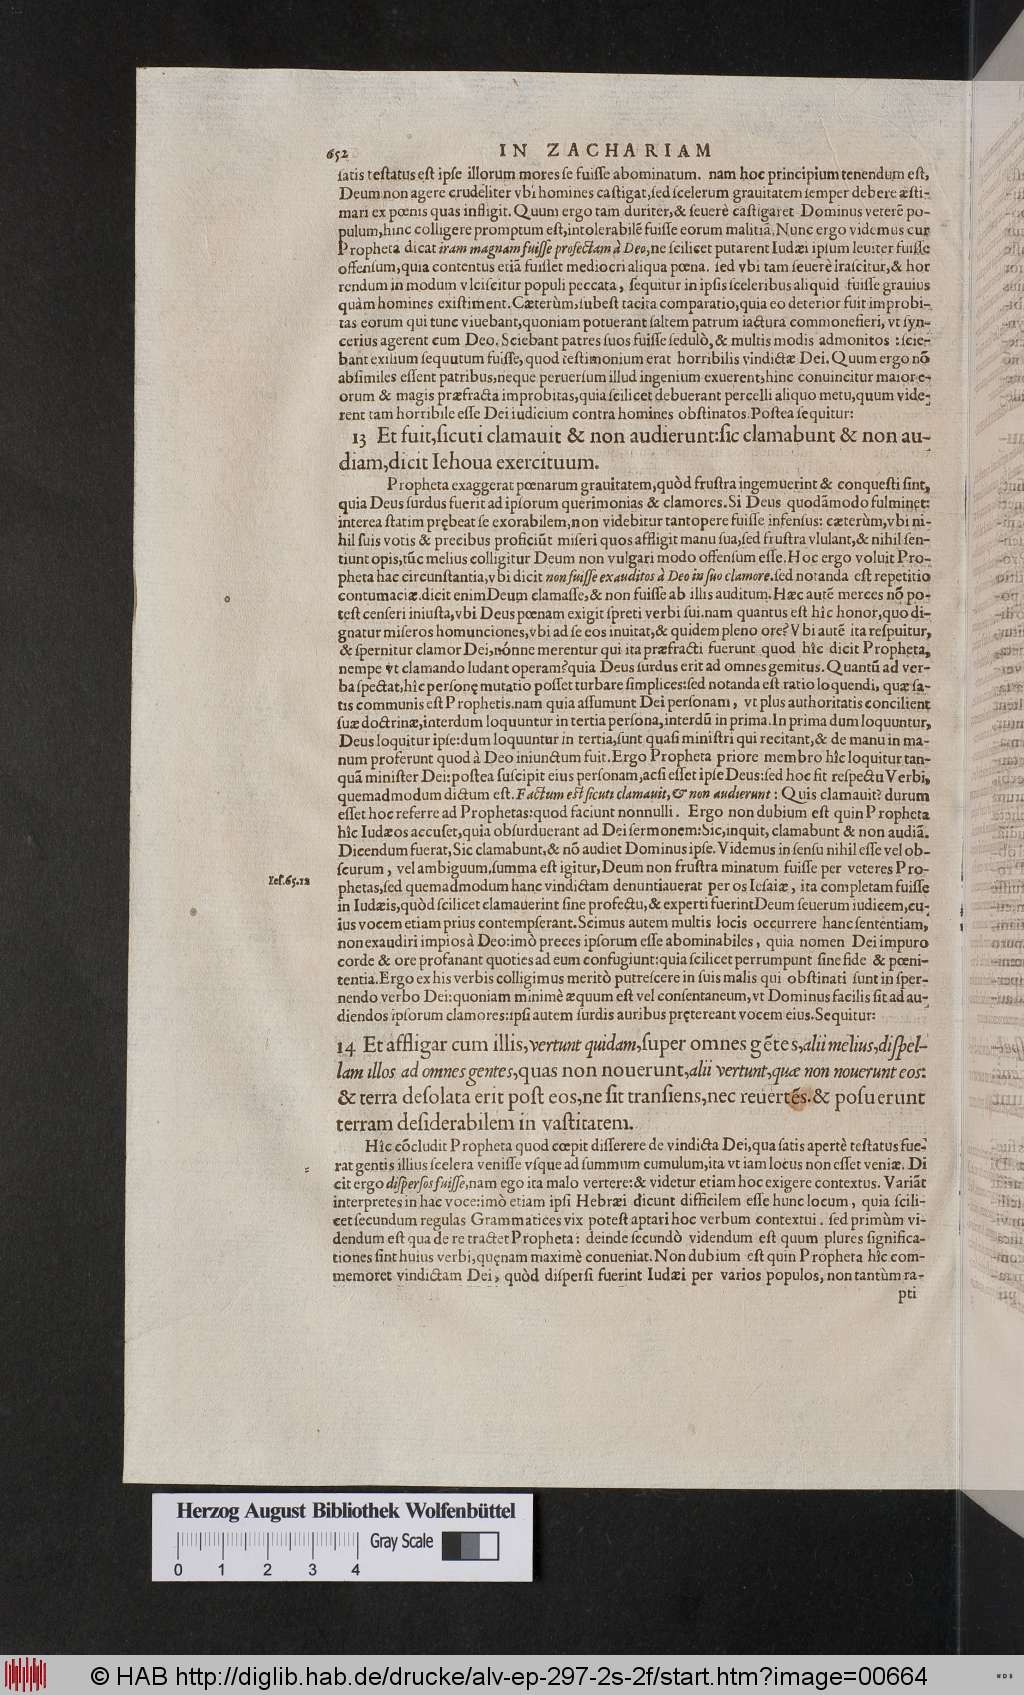 652 IN ZACHARIAM
ſatis teſtatus eſt ipſe illorum mores ſe fuiſſe abominatum. nam hoc principium tenendum eſt,
Deum non agere crudeliter vbi homines caſtigat, ſed ſcelerum grauitatem ſemper debere æſti-
mari ex pœnis quas infligit. Quum ergo tam duriter, & ſeuerè caſtigaret Dominus veterē po-
pulum, hinc colligere promptum eſt, intolerabilē fuiſſe eorum malitiā. Nunc ergo videmus cur
Propheta dicat iram magnam fuiſſe profectam à Deo, ne ſcilicet putarent Iudæi ipſum leuiter fuiſſe
offenſum, quia contentus etiā fuiſſet mediocri aliqua pœna. ſed vbi tam ſeuerè iraſcitur, & hor
rendum in modum vlciſcitur populi peccata, ſequitur in ipſis ſceleribus aliquid fuiſſe grauius
quàm homines exiſtiment. Cæterùm, ſubeſt tacita comparatio, quia eo deterior fuit improbi-
tas eorum qui tunc viuebant, quoniam potuerant ſaltem patrum iactura commonefieri, vt ſyn-
cerius agerent cum Deo. Sciebant patres ſuos fuiſſe ſedulò, & multis modis admonitos : ſcie-
bant exilium ſequutum fuiſſe, quod teſtimonium erat horribilis vindictæ Dei. Quum ergo nō
abſimiles eſſent patribus, neque peruerſum illud ingenium exuerent, hinc conuincitur maior e-
orum & magis præfracta improbitas, quia ſcilicet debuerant percelli aliquo metu, quum vide-
rent tam horribile eſſe Dei iudicium contra homines obſtinatos. Poſtea ſequitur:
13 Et fuit, ſicuti clamauit & non audierunt: ſic clamabunt & non au-
diam, dicit Iehoua exercituum.
Propheta exaggerat pœnarum grauitatem, quòd fruſtra ingemuerint & conqueſti ſint,
quia Deus ſurdus fuerit ad ipſorum querimonias & clamores. Si Deus quodāmodo fulminet:
interea ſtatim prębeat ſe exorabilem, non videbitur tantopere fuiſſe infenſus: cæterùm, vbi ni-
hil ſuis votis & precibus proficiūt miſeri quos affligit manu ſua, ſed fruſtra vlulant, & nihil ſen-
tiunt opis, tūc melius colligitur Deum non vulgari modo offenſum eſſe. Hoc ergo voluit Pro-
pheta hac circunſtantia, vbi dicit non fuiſſe exauditos à Deo in ſuo clamore. ſed notanda eſt repetitio
contumaciæ. dicit enim Deum clamaſſe, & non fuiſſe ab illis auditum. Hæc autē merces nō po-
teſt cenſeri iniuſta, vbi Deus pœnam exigit ſpreti verbi ſui. nam quantus eſt hîc honor, quo di-
gnatur miſeros homunciones, vbi ad ſe eos inuitat, & quidem pleno ore? Vbi autē ita reſpuitur,
& ſpernitur clamor Dei, nónne merentur qui ita præfracti fuerunt quod hîc dicit Propheta,
nempe vt clamando ludant operam? quia Deus ſurdus erit ad omnes gemitus. Quantū ad ver-
ba ſpectat, hîc perſonę mutatio poſſet turbare ſimplices: ſed notanda eſt ratio loquendi, quæ ſa-
tis communis eſt Prophetis. nam quia aſſumunt Dei perſonam, vt plus authoritatis concilient
ſuæ doctrinæ, interdum loquuntur in tertia perſona, interdū in prima. In prima dum loquuntur,
Deus loquitur ipſe: dum loquuntur in tertia, ſunt quaſi miniſtri qui recitant, & de manu in ma-
num proferunt quod à Deo iniunctum fuit. Ergo Propheta priore membro hîc loquitur tan-
quā miniſter Dei: poſtea ſuſcipit eius perſonam, acſi eſſet ipſe Deus: ſed hoc fit reſpectu Verbi,
quemadmodum dictum eſt. Factum eſt ſicuti clamauit, & non audierunt : Quis clamauit? durum
eſſet hoc referre ad Prophetas: quod faciunt nonnulli. Ergo non dubium eſt quin Propheta
hîc Iudæos accuſet, quia obſurduerant ad Dei ſermonem: Sic, inquit, clamabunt & non audiā.
Dicendum fuerat, Sic clamabunt, & nō audiet Dominus ipſe. Videmus in ſenſu nihil eſſe vel ob-
ſcurum, vel ambiguum, ſumma eſt igitur, Deum non fruſtra minatum fuiſſe per veteres Pro-
Ieſ. 65.12
phetas, ſed quemadmodum hanc vindictam denuntiauerat per os Ieſaiæ, ita completam fuiſſe
in Iudæis, quòd ſcilicet clamauerint ſine profectu, & experti fuerint Deum ſeuerum iudicem, cu-
ius vocem etiam prius contempſerant. Scimus autem multis locis occurrere hanc ſententiam,
non exaudiri impios à Deo: imò preces ipſorum eſſe abominabiles, quia nomen Dei impuro
corde & ore profanant quoties ad eum confugiunt: quia ſcilicet perrumpunt ſine fide & pœni-
tentia. Ergo ex his verbis colligimus meritò putreſcere in ſuis malis qui obſtinati ſunt in ſper-
nendo verbo Dei: quoniam minimè æquum eſt vel conſentaneum, vt Dominus facilis ſit ad au-
diendos ipſorum clamores: ipſi autem ſurdis auribus prętereant vocem eius. Sequitur:
14 Et affligar cum illis, vertunt quidam, ſuper omnes gētes, alii melius, diſpel-
lam illos ad omnes gentes, quas non nouerunt, alii vertunt, quæ non nouerunt eos:
& terra deſolata erit poſt eos, ne ſit tranſiens, nec reuertēs. & poſuerunt
terram deſiderabilem in vaſtitatem.
Hîc cōcludit Propheta quod cœpit diſſerere de vindicta Dei, qua ſatis apertè teſtatus fue-
rat gentis illius ſcelera veniſſe vſque ad ſummum cumulum, ita vt iam locus non eſſet veniæ. Di
cit ergo diſperſos fuiſſe, nam ego ita malo vertere: & videtur etiam hoc exigere contextus. Variāt
interpretes in hac voce: imò etiam ipſi Hebræi dicunt difficilem eſſe hunc locum, quia ſcili-
cet ſecundum regulas Grammatices vix poteſt aptari hoc verbum contextui. ſed primùm vi-
dendum eſt qua de re tractet Propheta: deinde ſecundò videndum eſt quum plures ſignifica-
tiones ſint huius verbi, quęnam maximè conueniat. Non dubium eſt quin Propheta hîc com-
memoret vindictam Dei, quòd diſperſi fuerint Iudæi per varios populos, non tantùm ra-
pti
Herzog August Bibliothek Wolfenbüttel
Gray Scale
0 1 2 3 4
© HAB http://diglib.hab.de/drucke/alv-ep-297-2s-2f/start.htm?image=00664